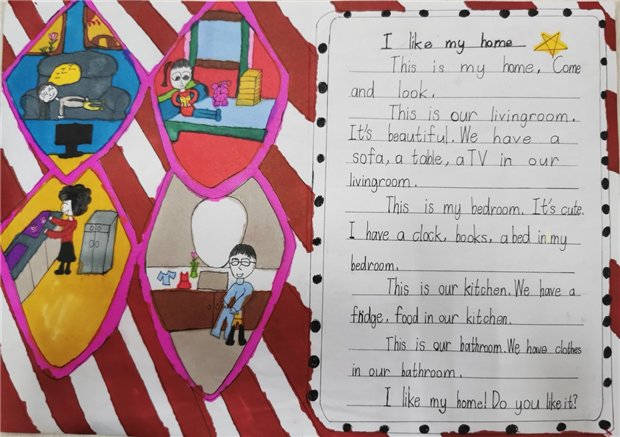 I like my home
This is my home. Come
and look.
This is our livingroom.
It's beautiful. We have a
sofa, a table, a TV in our
livingroom.
This is my bedroom. It's cute.
I have a clock, books, a bed in my
bedroom.
This is our kitchen. We have a
fridge, food in our kitchen.
This is our bathroom. We have clothes
in our bathroom.
I like my home! Do you like it?